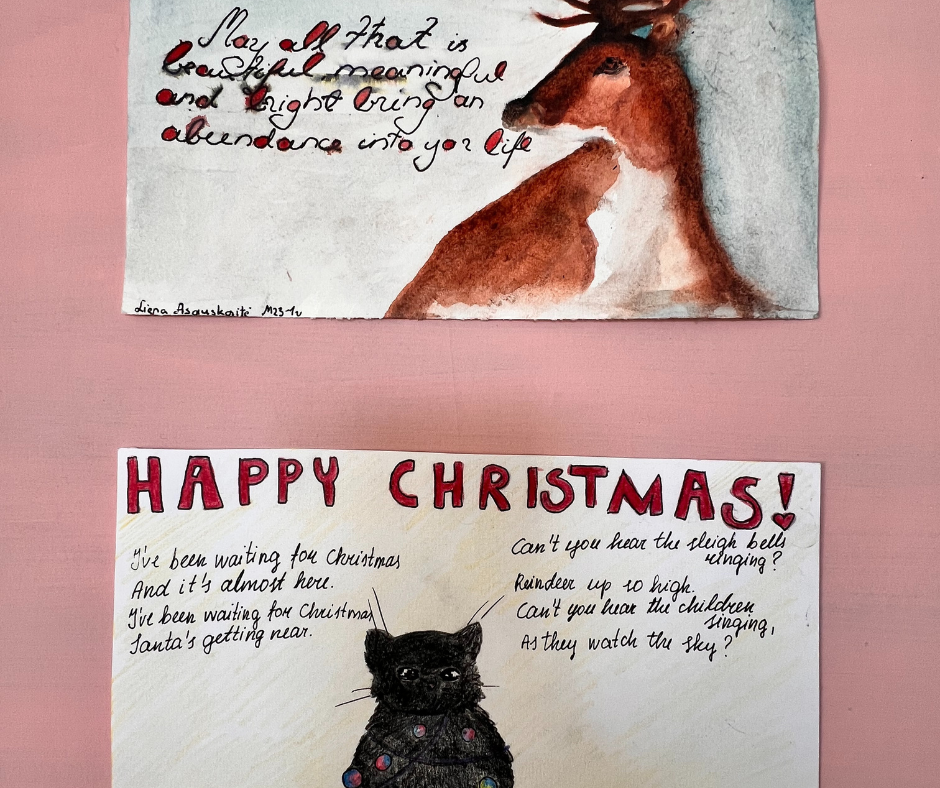 May all that is
beautiful meaningful
and bright bring an
abundance into yor life
Liena Asauskaitė M23-1v
HAPPY CHRISTMAS!
I've been waiting for Christmas
And it's almost here.
I've been waiting for Christmas
Santa's getting near.
Can't you hear the sleigh bells
ringing?
Reindeer up so high.
Can't you hear the children
singing,
As they watch the sky?